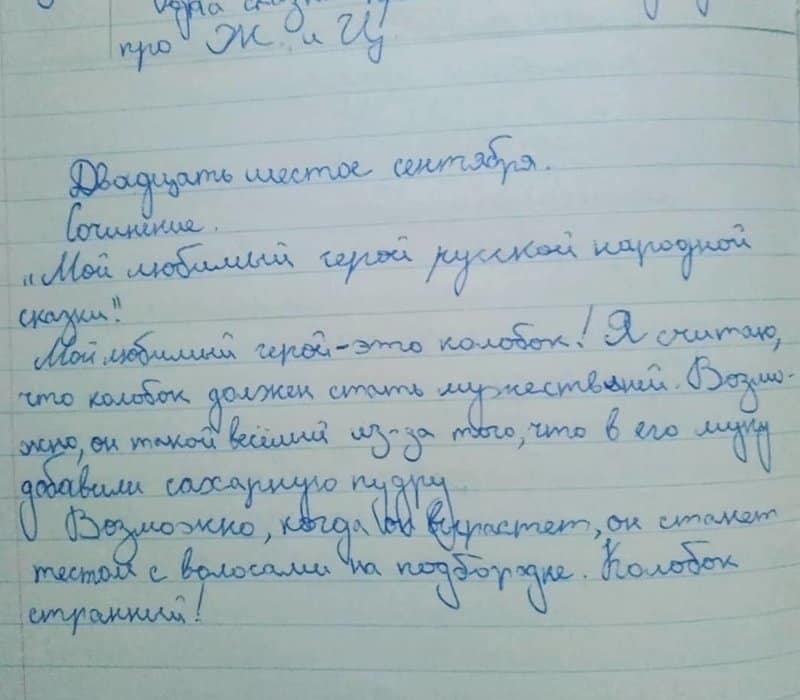 сказк
про Ж и Ц
Двадцать шестое сентября.
Сочинение.
„Мой любимый герой русской народной
сказки."
Мой любимый герой-это колобок! Я считаю,
что колобок должен стать мужествней. Возмо-
жно, он такой весёлий из-за того, что в его муку
добавили сахарную пудру
Возможно, когда он вырастет, он станет
тестом с волосами на подбородке. Колобок
странний!